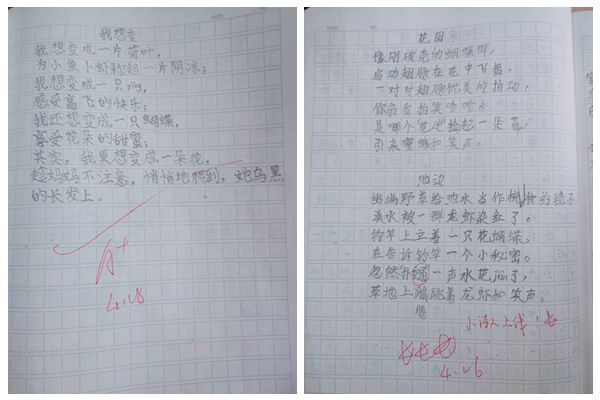 我想变
我想变成一片荷叶,
为小鱼小虾称起一片阴凉;
我想变成一只鸟,
感受高飞的快乐;
我还想变成一只蝴蝶,
享受花朵的甜蜜;
其实,我更想变成一朵花,
趁妈妈不注意,悄悄地爬到,她乌黑
的长发上。
A+
4.28
花园
像刚放亮的蝴蝶群,
扇动翅膀在花中飞舞。
一对对翅膀优美的拍动,
你
是哪个花 捡起一朵花,
引来哪 和笑声。
池边
幽幽野草给池水当作 的镜子
溪水被一群龙虾染红了。
钓竿上立着一只花蝴蝶,
在告诉钓竿一个小秘密。
忽然扑通一声水花溅了,
草地上蹦跳着龙虾和笑声。
腾
小诗人上线!
4.26